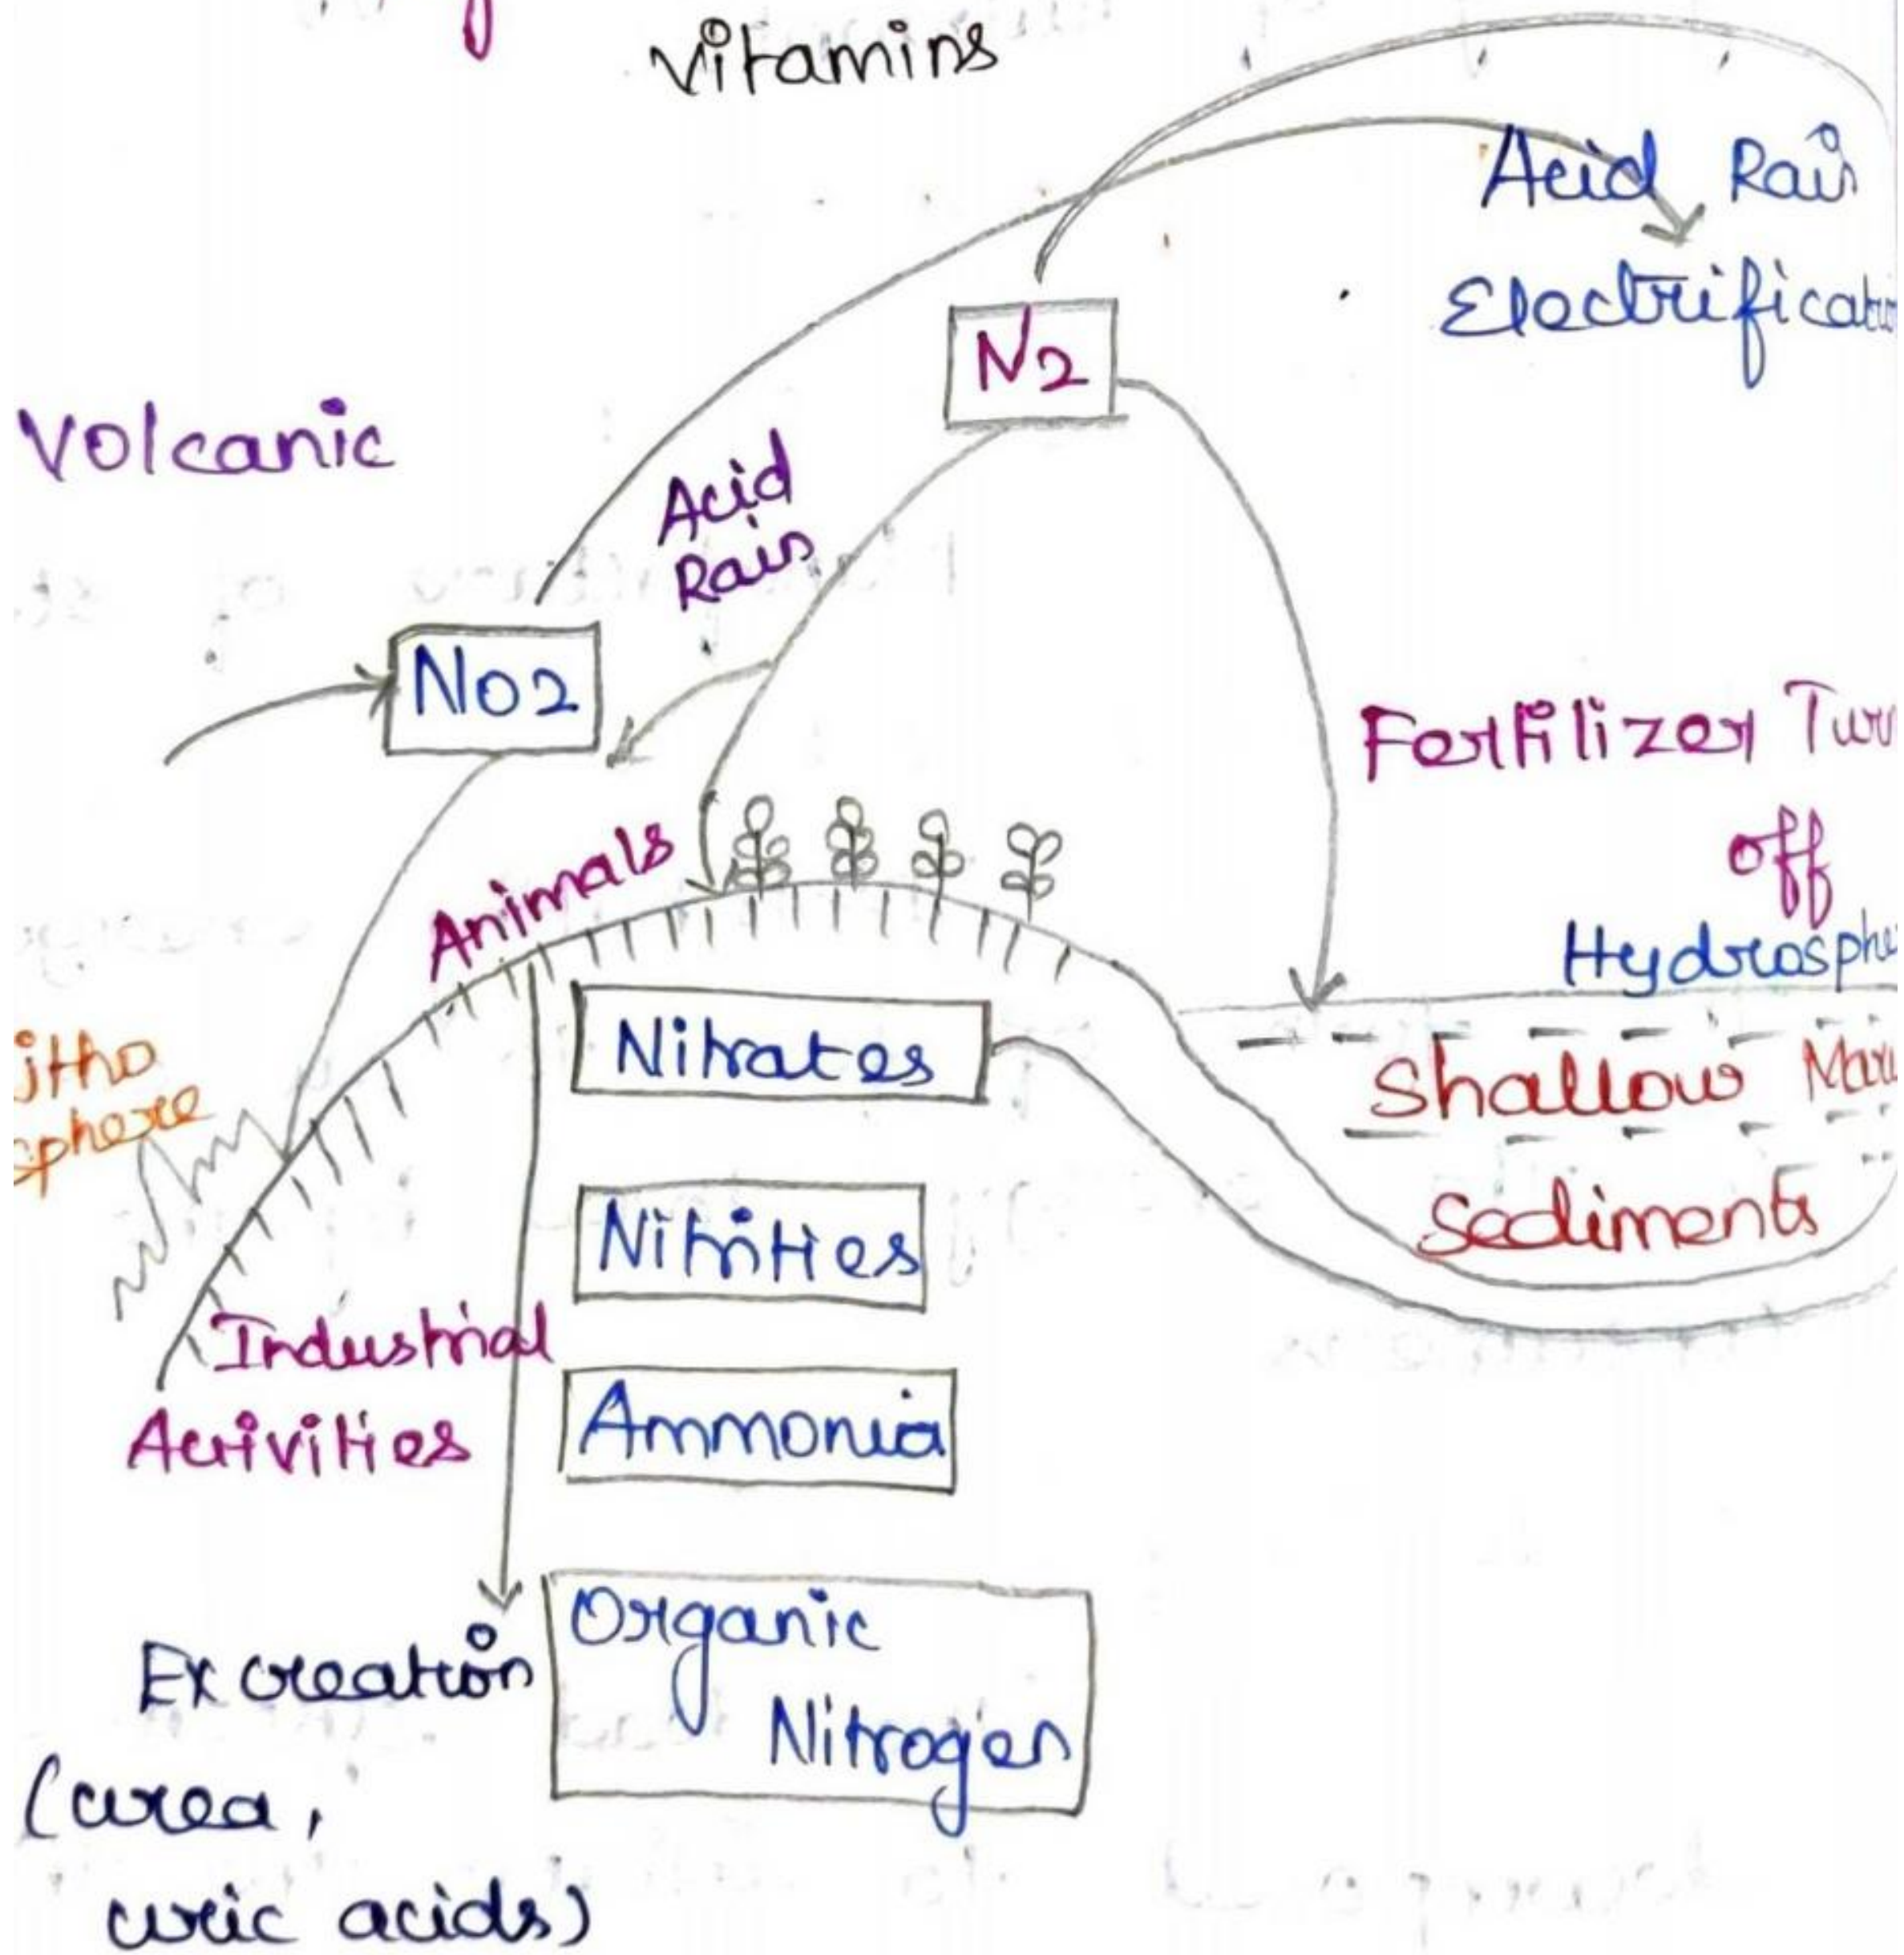 Vitamins
Acid Rain
Electrificati
N2
Volcanic
Acid
Rain
NO2
Fertilizer Tur
off
Animals
Hydrosphe
Nitrates
itho
sphere
Shallow Mar
Sediments
Nitrities
Industrial
Activities
Ammonia
Organic
Nitrogen
Excreation
(urea,
uric acids)